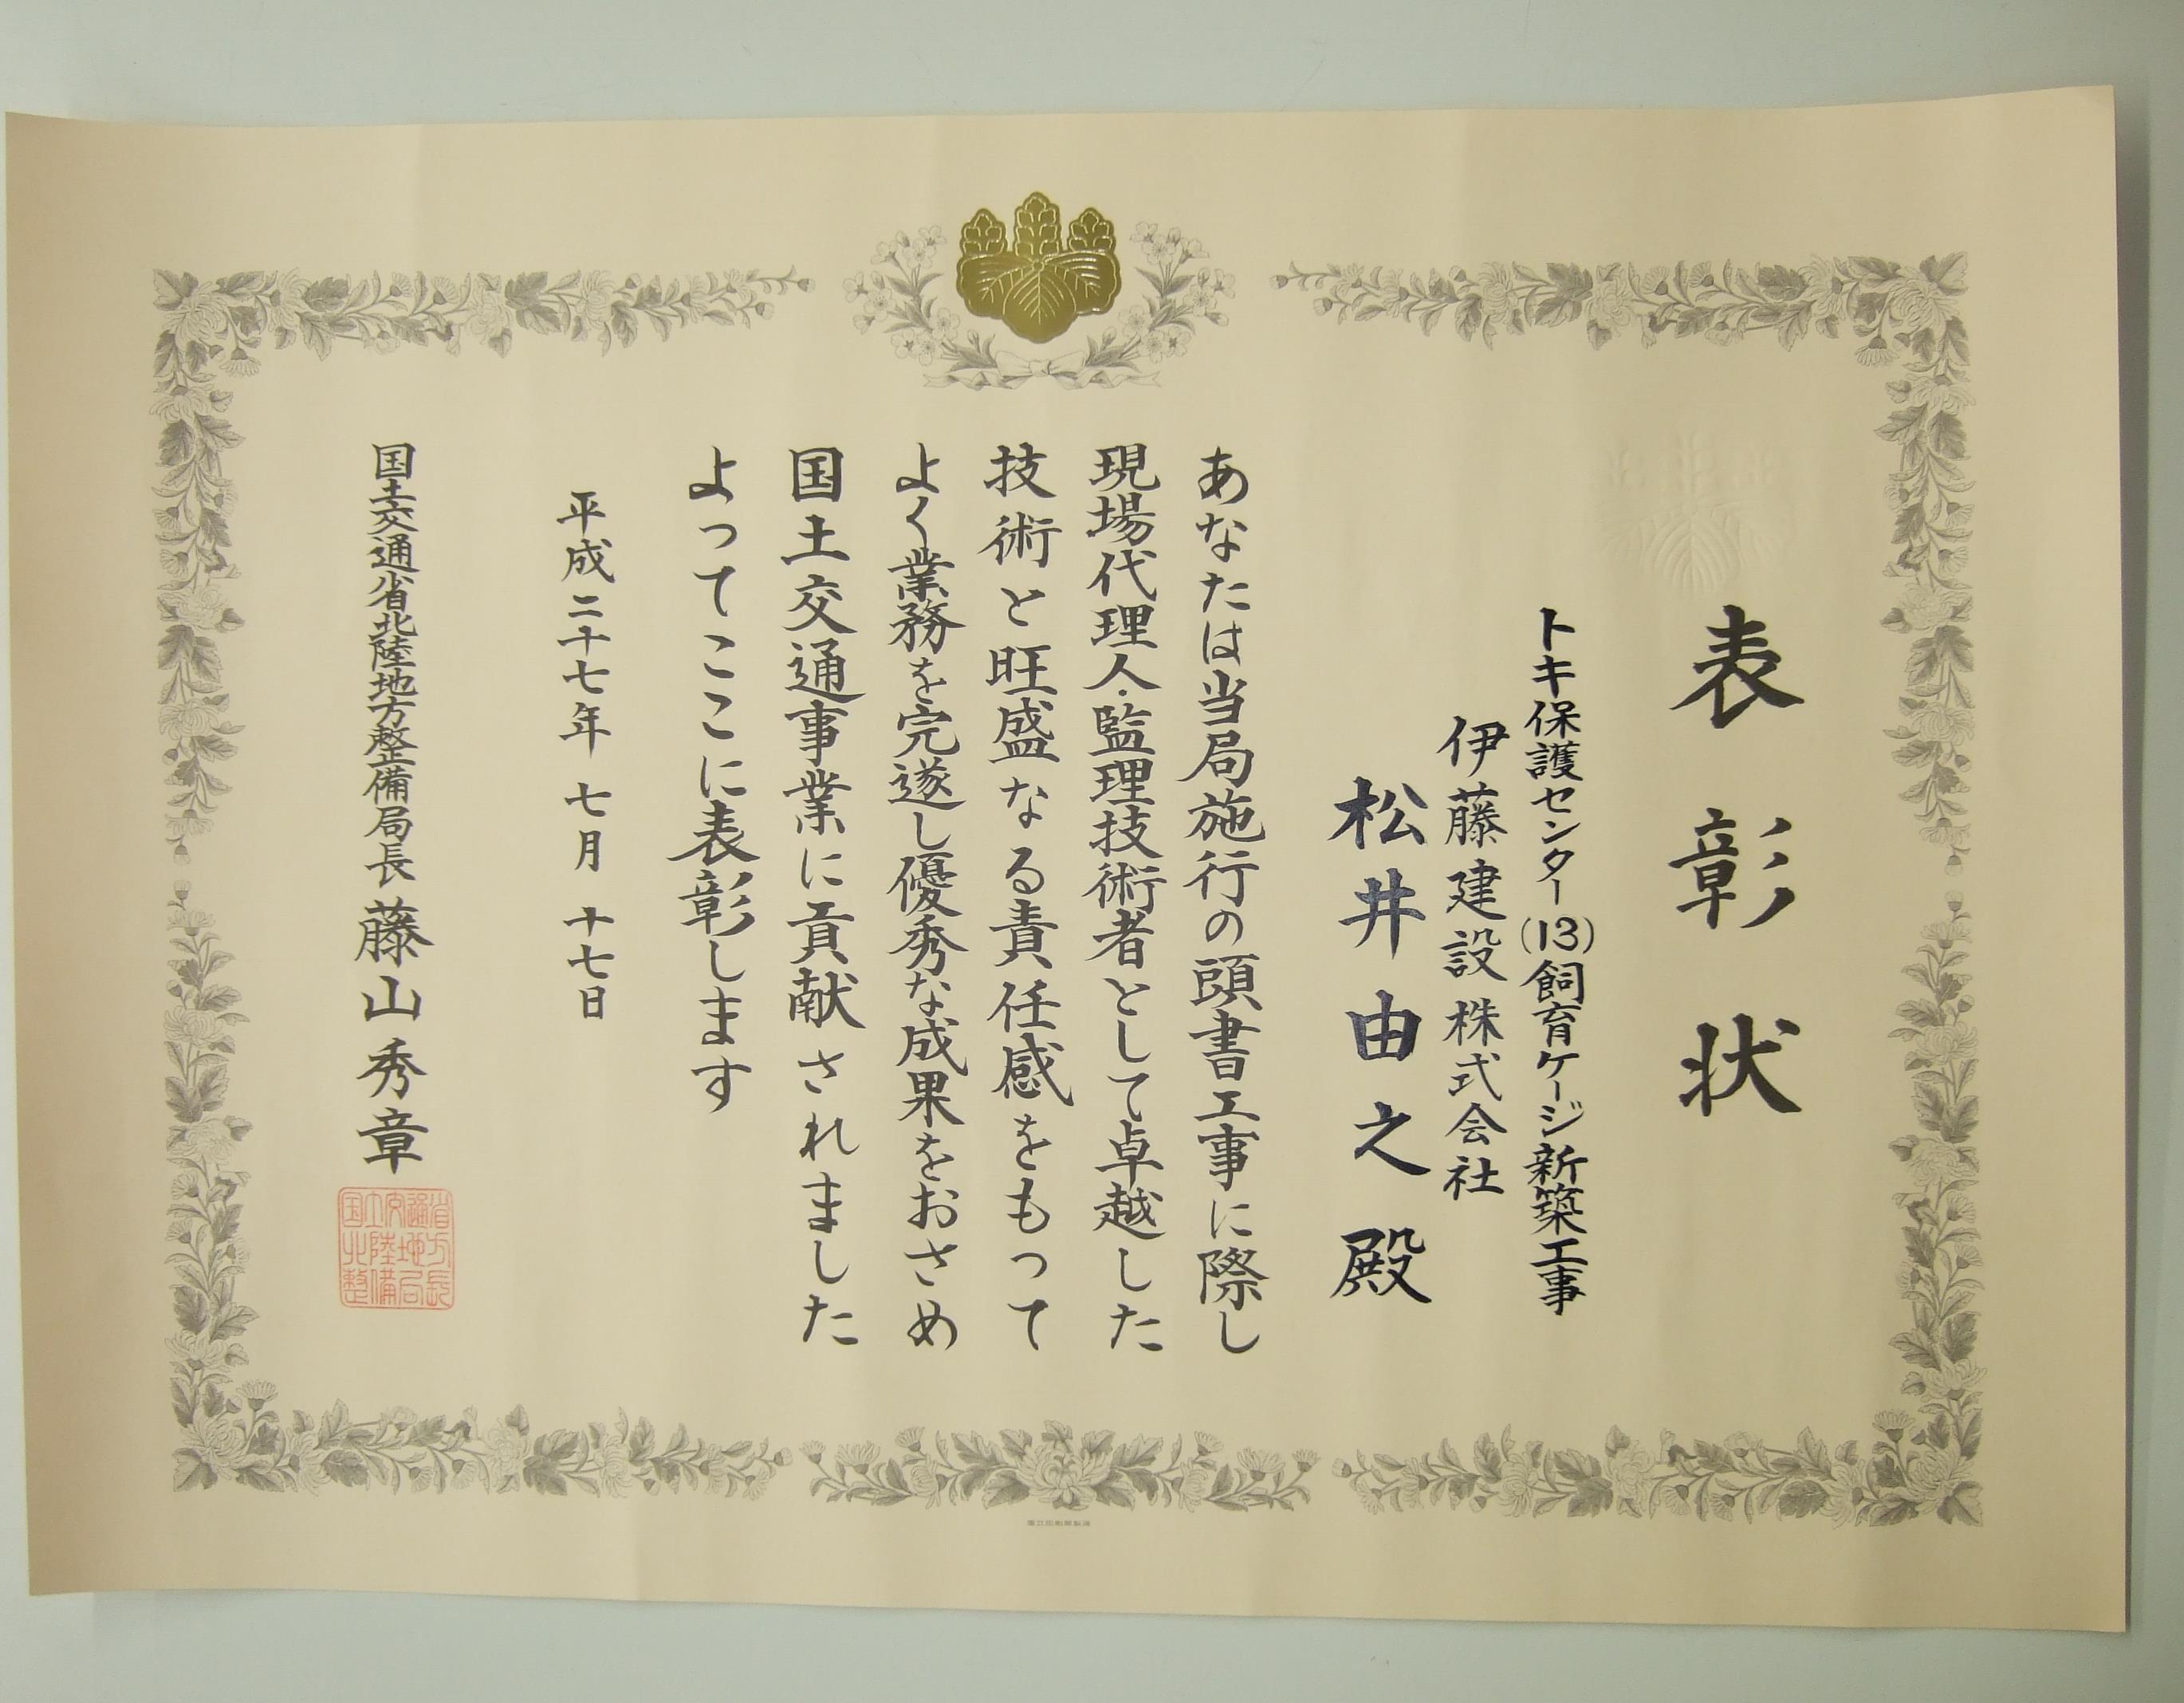 表彰状
トキ保護センター(13)飼育ケージ新築工事
伊藤建設株式会社
松井由之殿
あなたは当局施行の頭書工事に際し
現場代理人・監理技術者として卓越した
技術と旺盛なる責任感をもって
よく業務を完遂し優秀な成果をおさめ
国土交通事業に貢献されました
よってここに表彰します
平成二十七年七月十七日
国土交通省北陸地方整備局長藤山秀章